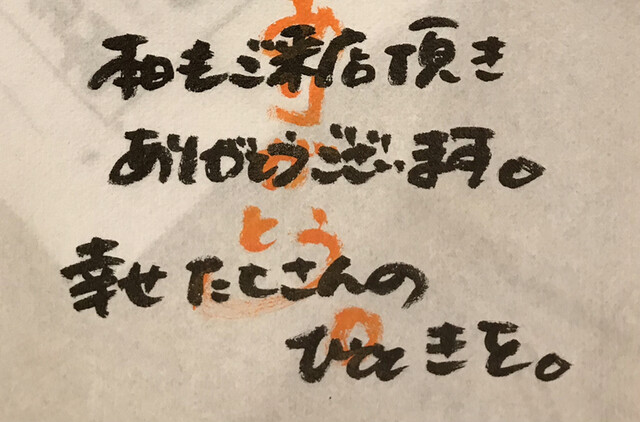 本日もご来店頂き
ありがとうございます。
幸せたくさんの
ひとときを。
ありがとう